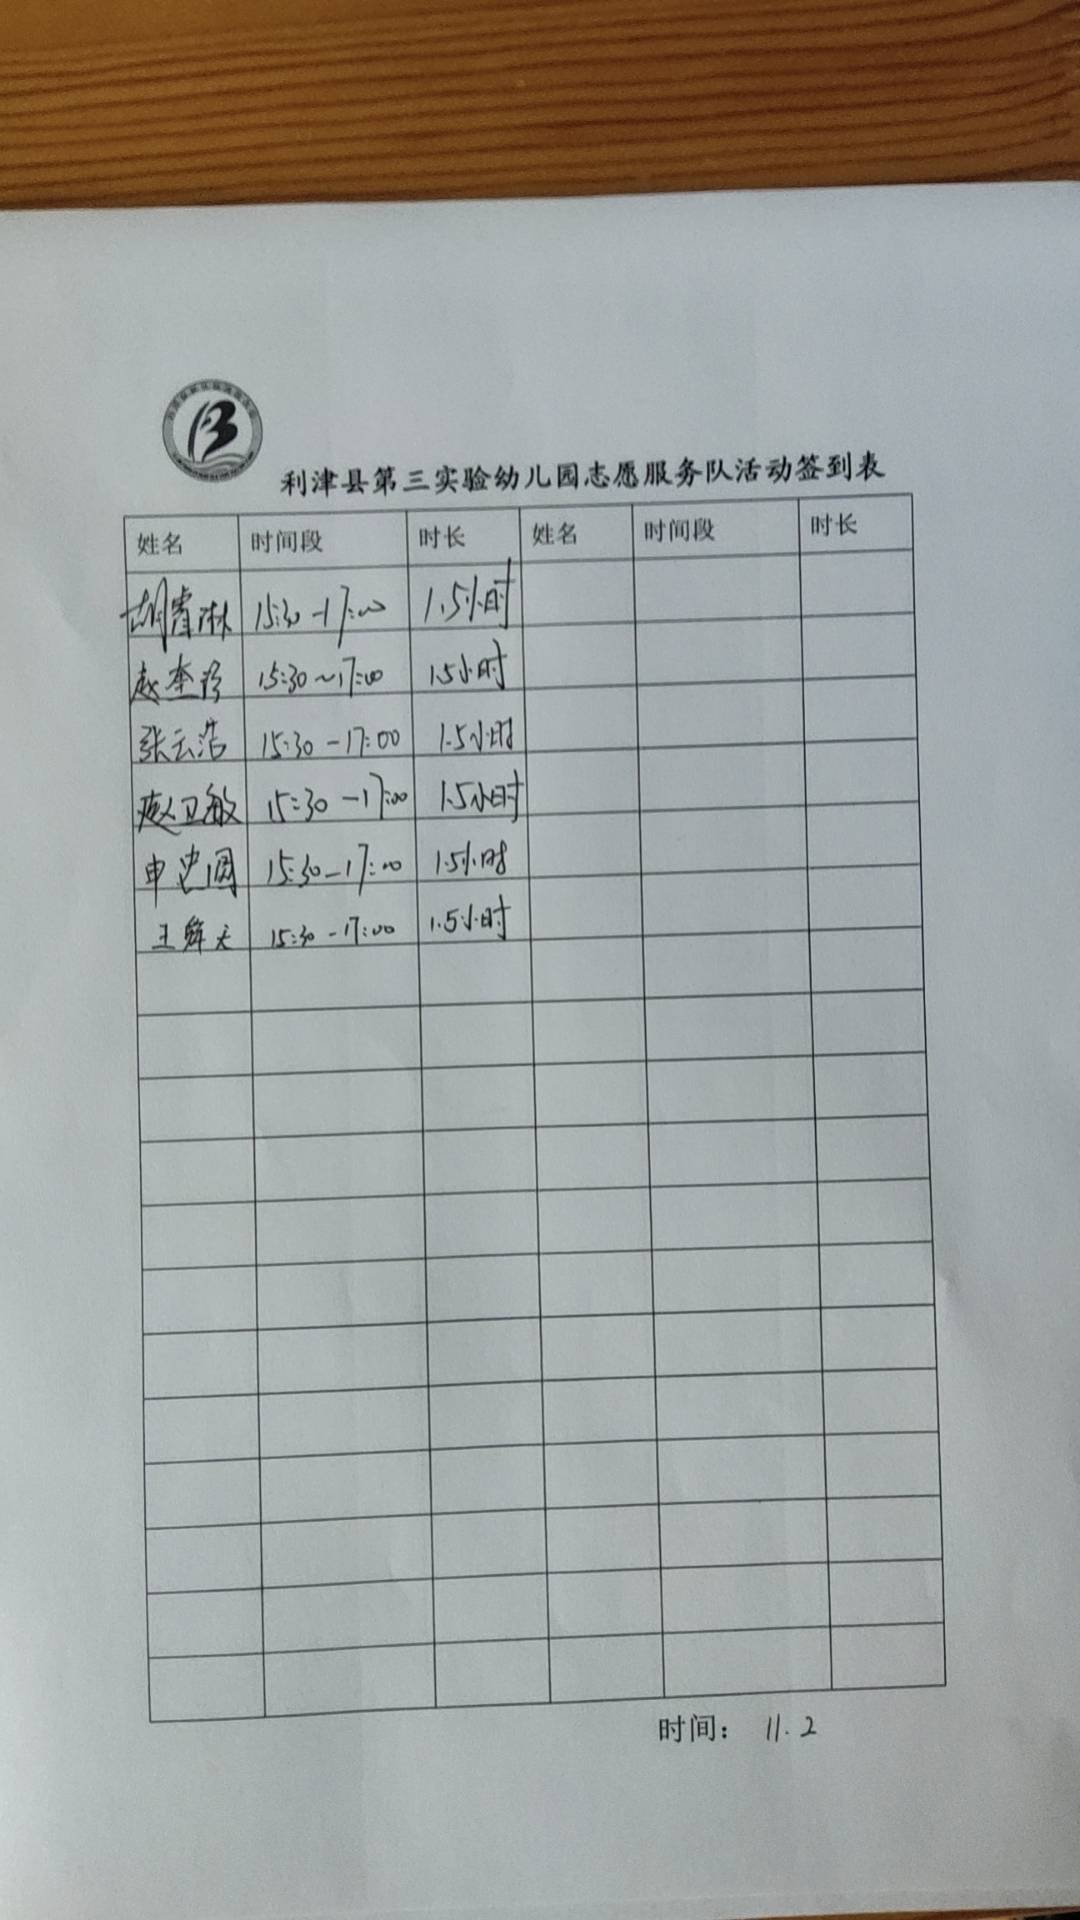 利津县第三实验幼儿园志愿服务队活动签到表
姓名 时间段 时长 姓名 时间段 时长
胡睿淋 15:30-17:00 1.5小时
赵奎珍 15:30~17:00 1.5小时
张云浩 15:30-17:00 1.5小时
赵卫敏 15:30-17:00 1.5小时
申 15:30-17:00 1.5小时
王舜天 15:30-17:00 1.5小时
时间： 11.2